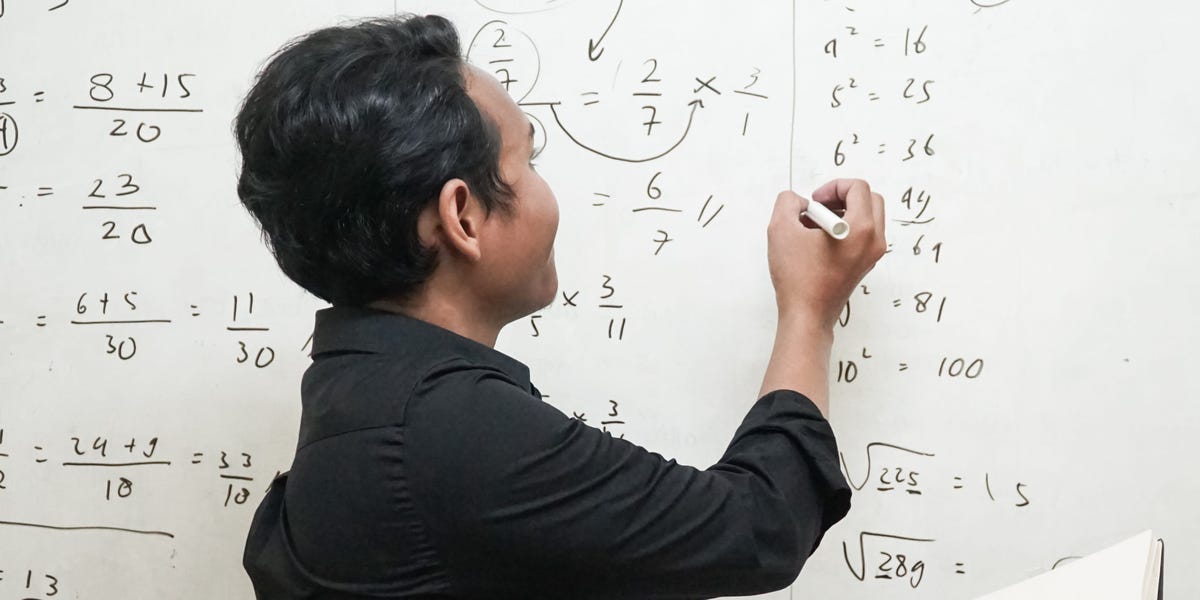 = 8 + 15
20
= 23
20
= 6 + 5 = 11
30 30
= 24 + 9 = 33
18 18
= 13
2
7
= 2 × 3
7 1
= 6 //
7
× 3
5 11
× 3
4² = 16
5² = 25
6² = 36
49
= 64
² = 81
10² = 100
√225 = 15
√289 =